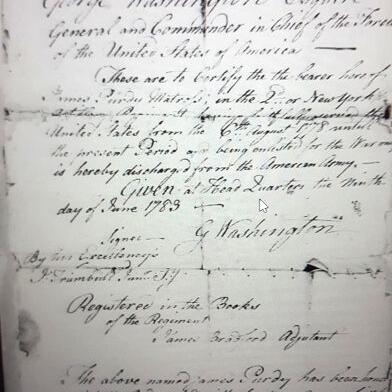 George Washington Esquire
General and Commander in Chief of the Forces
of the United States of America —
These are to Certify the the bearer here of
James Purdy Matross, in the 2nd or New York
United States from the 6th August 1778 untill
the present Period and being enlisted for the War only
is hereby discharged from the American Army. —
Given at Head Quarters the Ninth
day of June 1783
Signed — G Washington
By his Excellency's
J. Trumbull Junr. Sy
Registered in the Books
of the Regiment
James Bradford Adjutant
The above named James Purdy has been